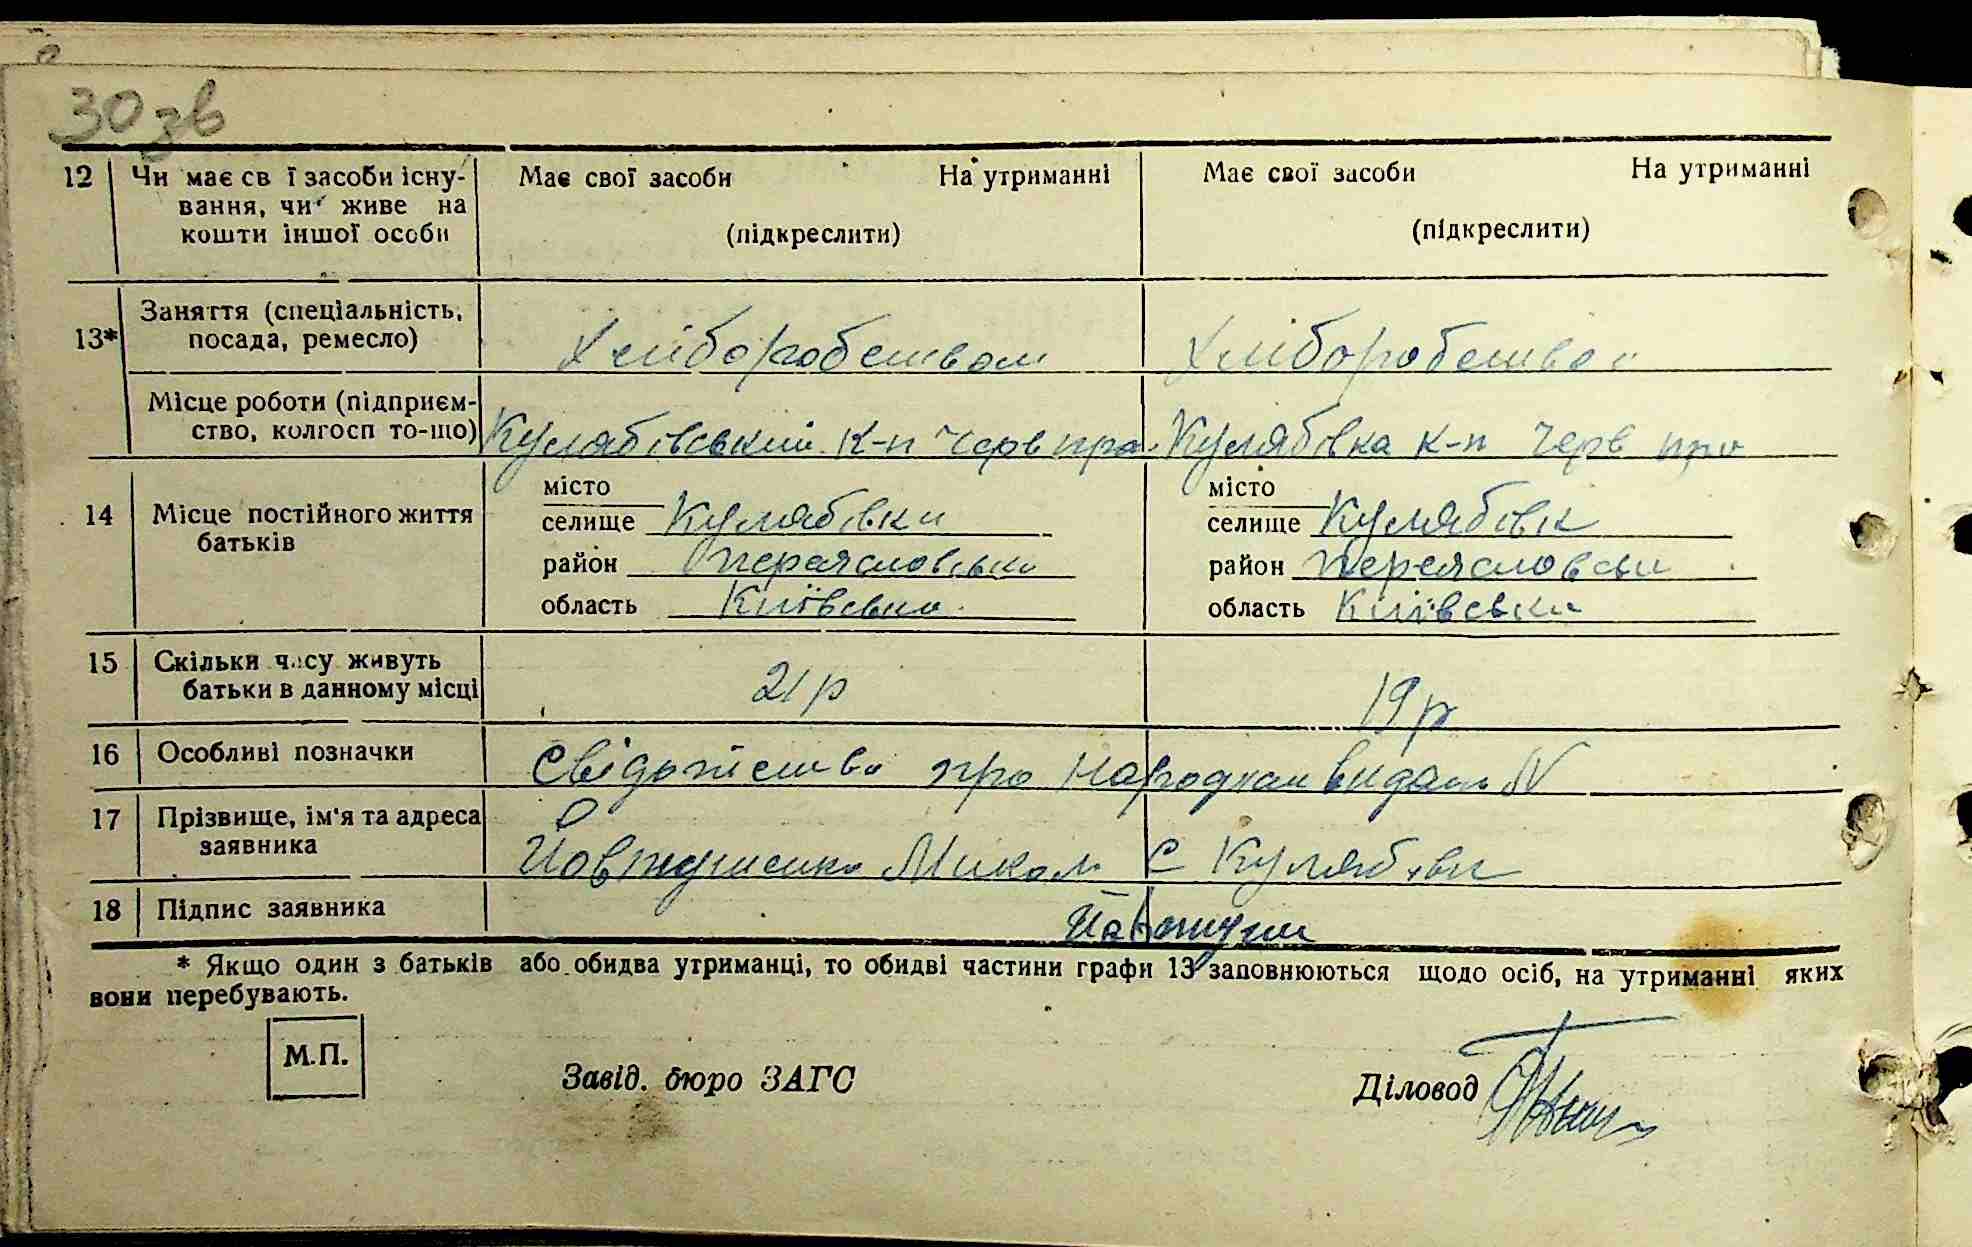 30 зв
12 Чи має св ї засоби існу- Має свої засоби На утриманні Має свої засоби На утриманні
вання, чи живе на
кошти іншої особи (підкреслити) (підкреслити)
13* Заняття (спеціальність,
посада, ремесло) Хліборобством Хліборобство
Місце роботи (підприєм-
ство, колгосп то-що) Кулябівський к-п Черв пра. Кулябівка к-п Черв пра
місто місто
14 Місце постійного життя селище Кулябівка селище Кулябівк
батьків район Переяславська район Переяславськ
область Київська область Київська
15 Скільки часу живуть
батьки в данному місці 21 р 19 р
16 Особливі позначки Свідотство про народжен видано №
17 Прізвище, ім'я та адреса
заявника Микола С Кулябівка
18 Підпис заявника
* Якщо один з батьків або обидва утриманці, то обидві частини графи 13 заповнюються щодо осіб, на утриманні яких
вони перебувають.
М.П.
Завід. бюро ЗАГС Діловод